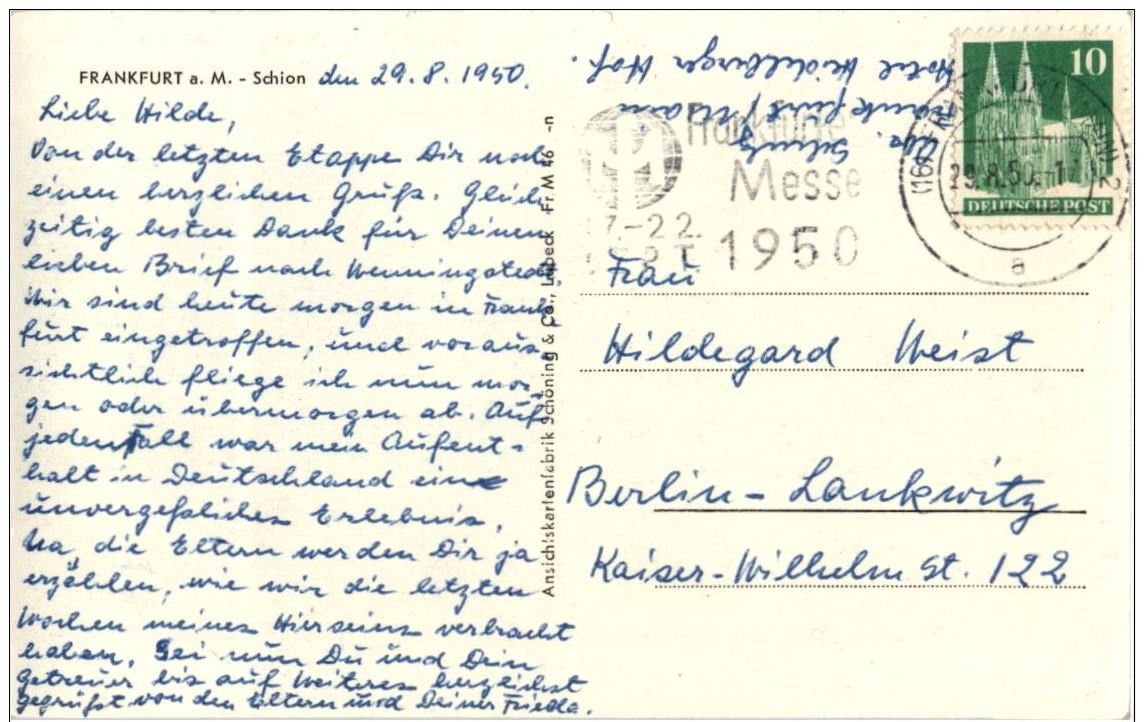 FRANKFURT a. M. - Schion den 29. 8. 1950.
Liebe Hilde,
Von der letzten Etappe Dir noch
einen herzlichen Gruß. Gleich
zeitig besten Dank für Deinen
lieben Brief nach Wenningstedt.
Wir sind heute morgen in Frank
furt eingetroffen, und voraus
sichtlich fliege ich nun mor-
gen oder übermorgen ab. Auf
jeden Fall war mein Aufent-
halt in Deutschland ein
unvergeßliches Erlebnis,
Na, die Eltern werden Dir ja
erzählen, wie wir die letzten
Wochen meines Hierseins verbracht
haben. Sei nun Du und Dein
getreuer bis auf Weiteres herzlichst
gegrüßt von den Eltern und Deiner Friedla.
Ansichtskartenfabrik Schöning & Co., Lübeck Fr M 46 -n
Abs. Schulz
Frankfurt/Main
Hotel Heidelberger Hof.
Frankfurte
Messe
17.-22.
SEPT 1950
(16) FRANKFURT (MAIN) 2
29.8.50.-17
a
10
DEUTSCHE POST
Frau
Hildegard Weist
Berlin - Lankwitz
Kaiser-Wilhelm St. 122